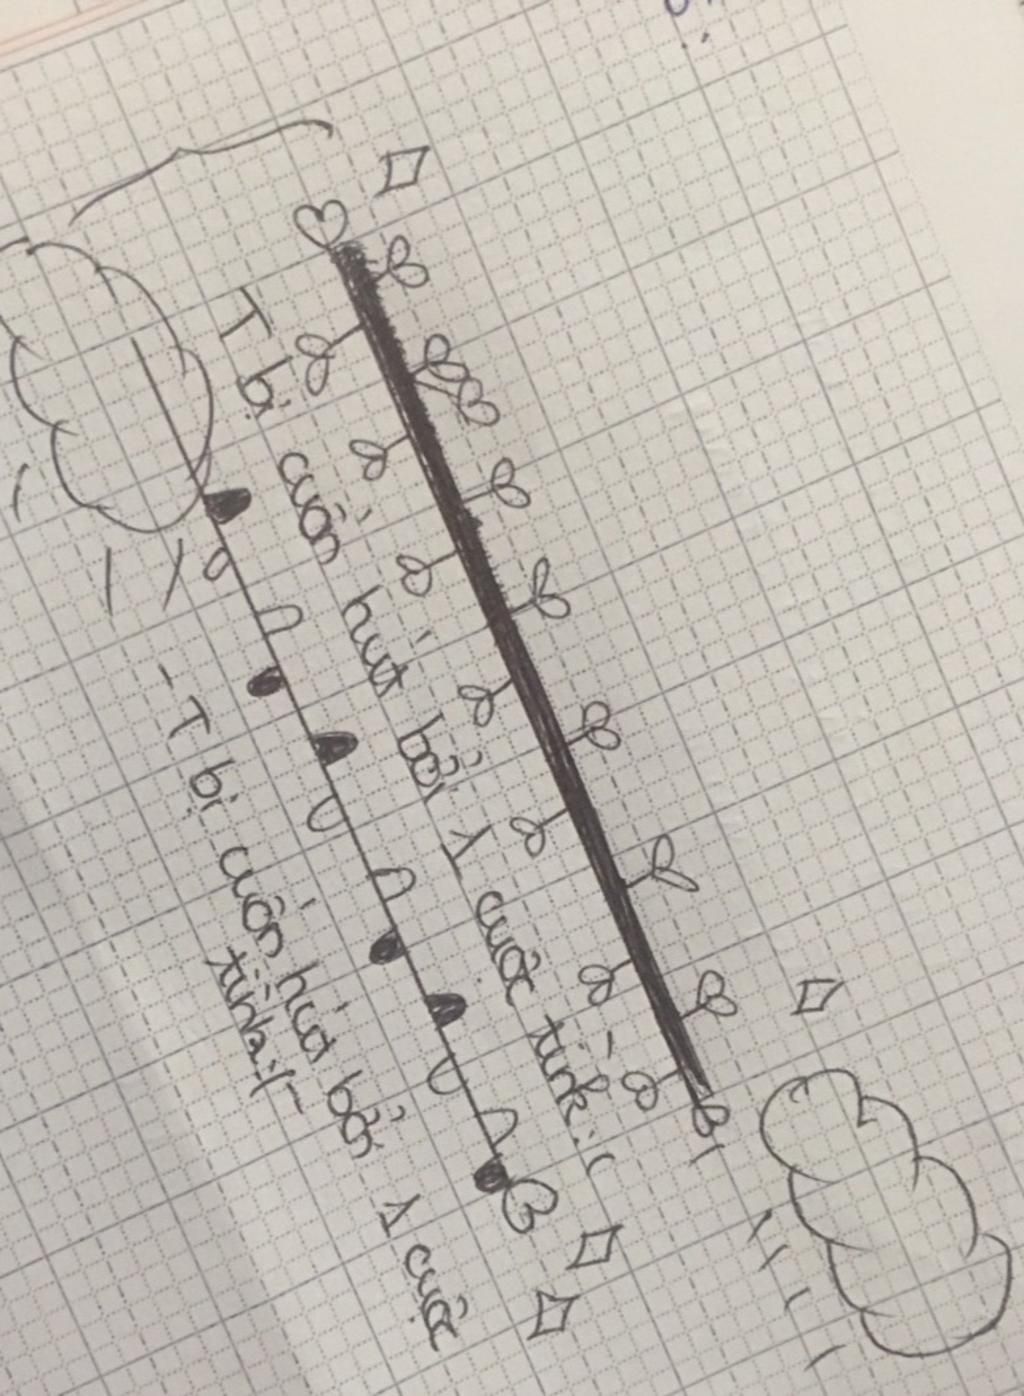 T bị cuốn hút bởi 1 cuộc tình :(
- T bị cuốn hút bởi 1 cuộc
tình :(